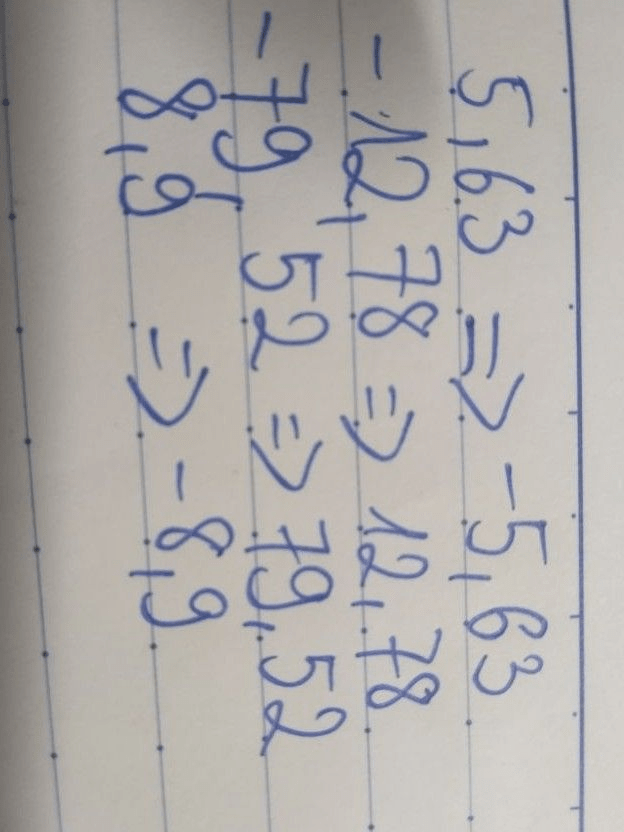 5,63 => -5,63
-12,78 => 12,78
-79,52 => 79,52
8,9 => -8,9